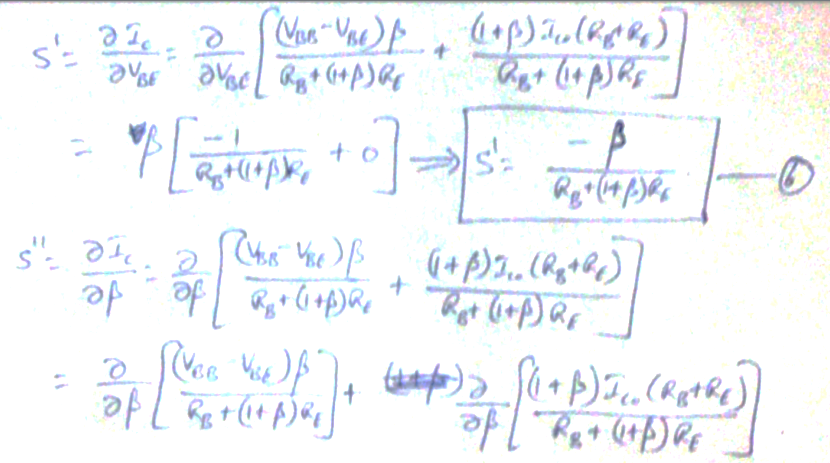 S' = ∂I_c/∂V_BE = ∂/∂V_BE [ (V_BB - V_BE)β / (R_B + (1+β)R_E) + (1+β)I_co(R_B+R_E) / (R_B + (1+β)R_E) ]
= β [ -1 / (R_B+(1+β)R_E) + 0 ] ⟹ S' = -β / (R_B+(1+β)R_E) — 6
S'' = ∂I_c/∂β = ∂/∂β [ (V_BB - V_BE)β / (R_B + (1+β)R_E) + (1+β)I_co(R_B+R_E) / (R_B + (1+β)R_E) ]
= ∂/∂β [ (V_BB - V_BE)β / (R_B + (1+β)R_E) ] + ∂/∂β [ (1+β)I_co(R_B+R_E) / (R_B + (1+β)R_E) ]